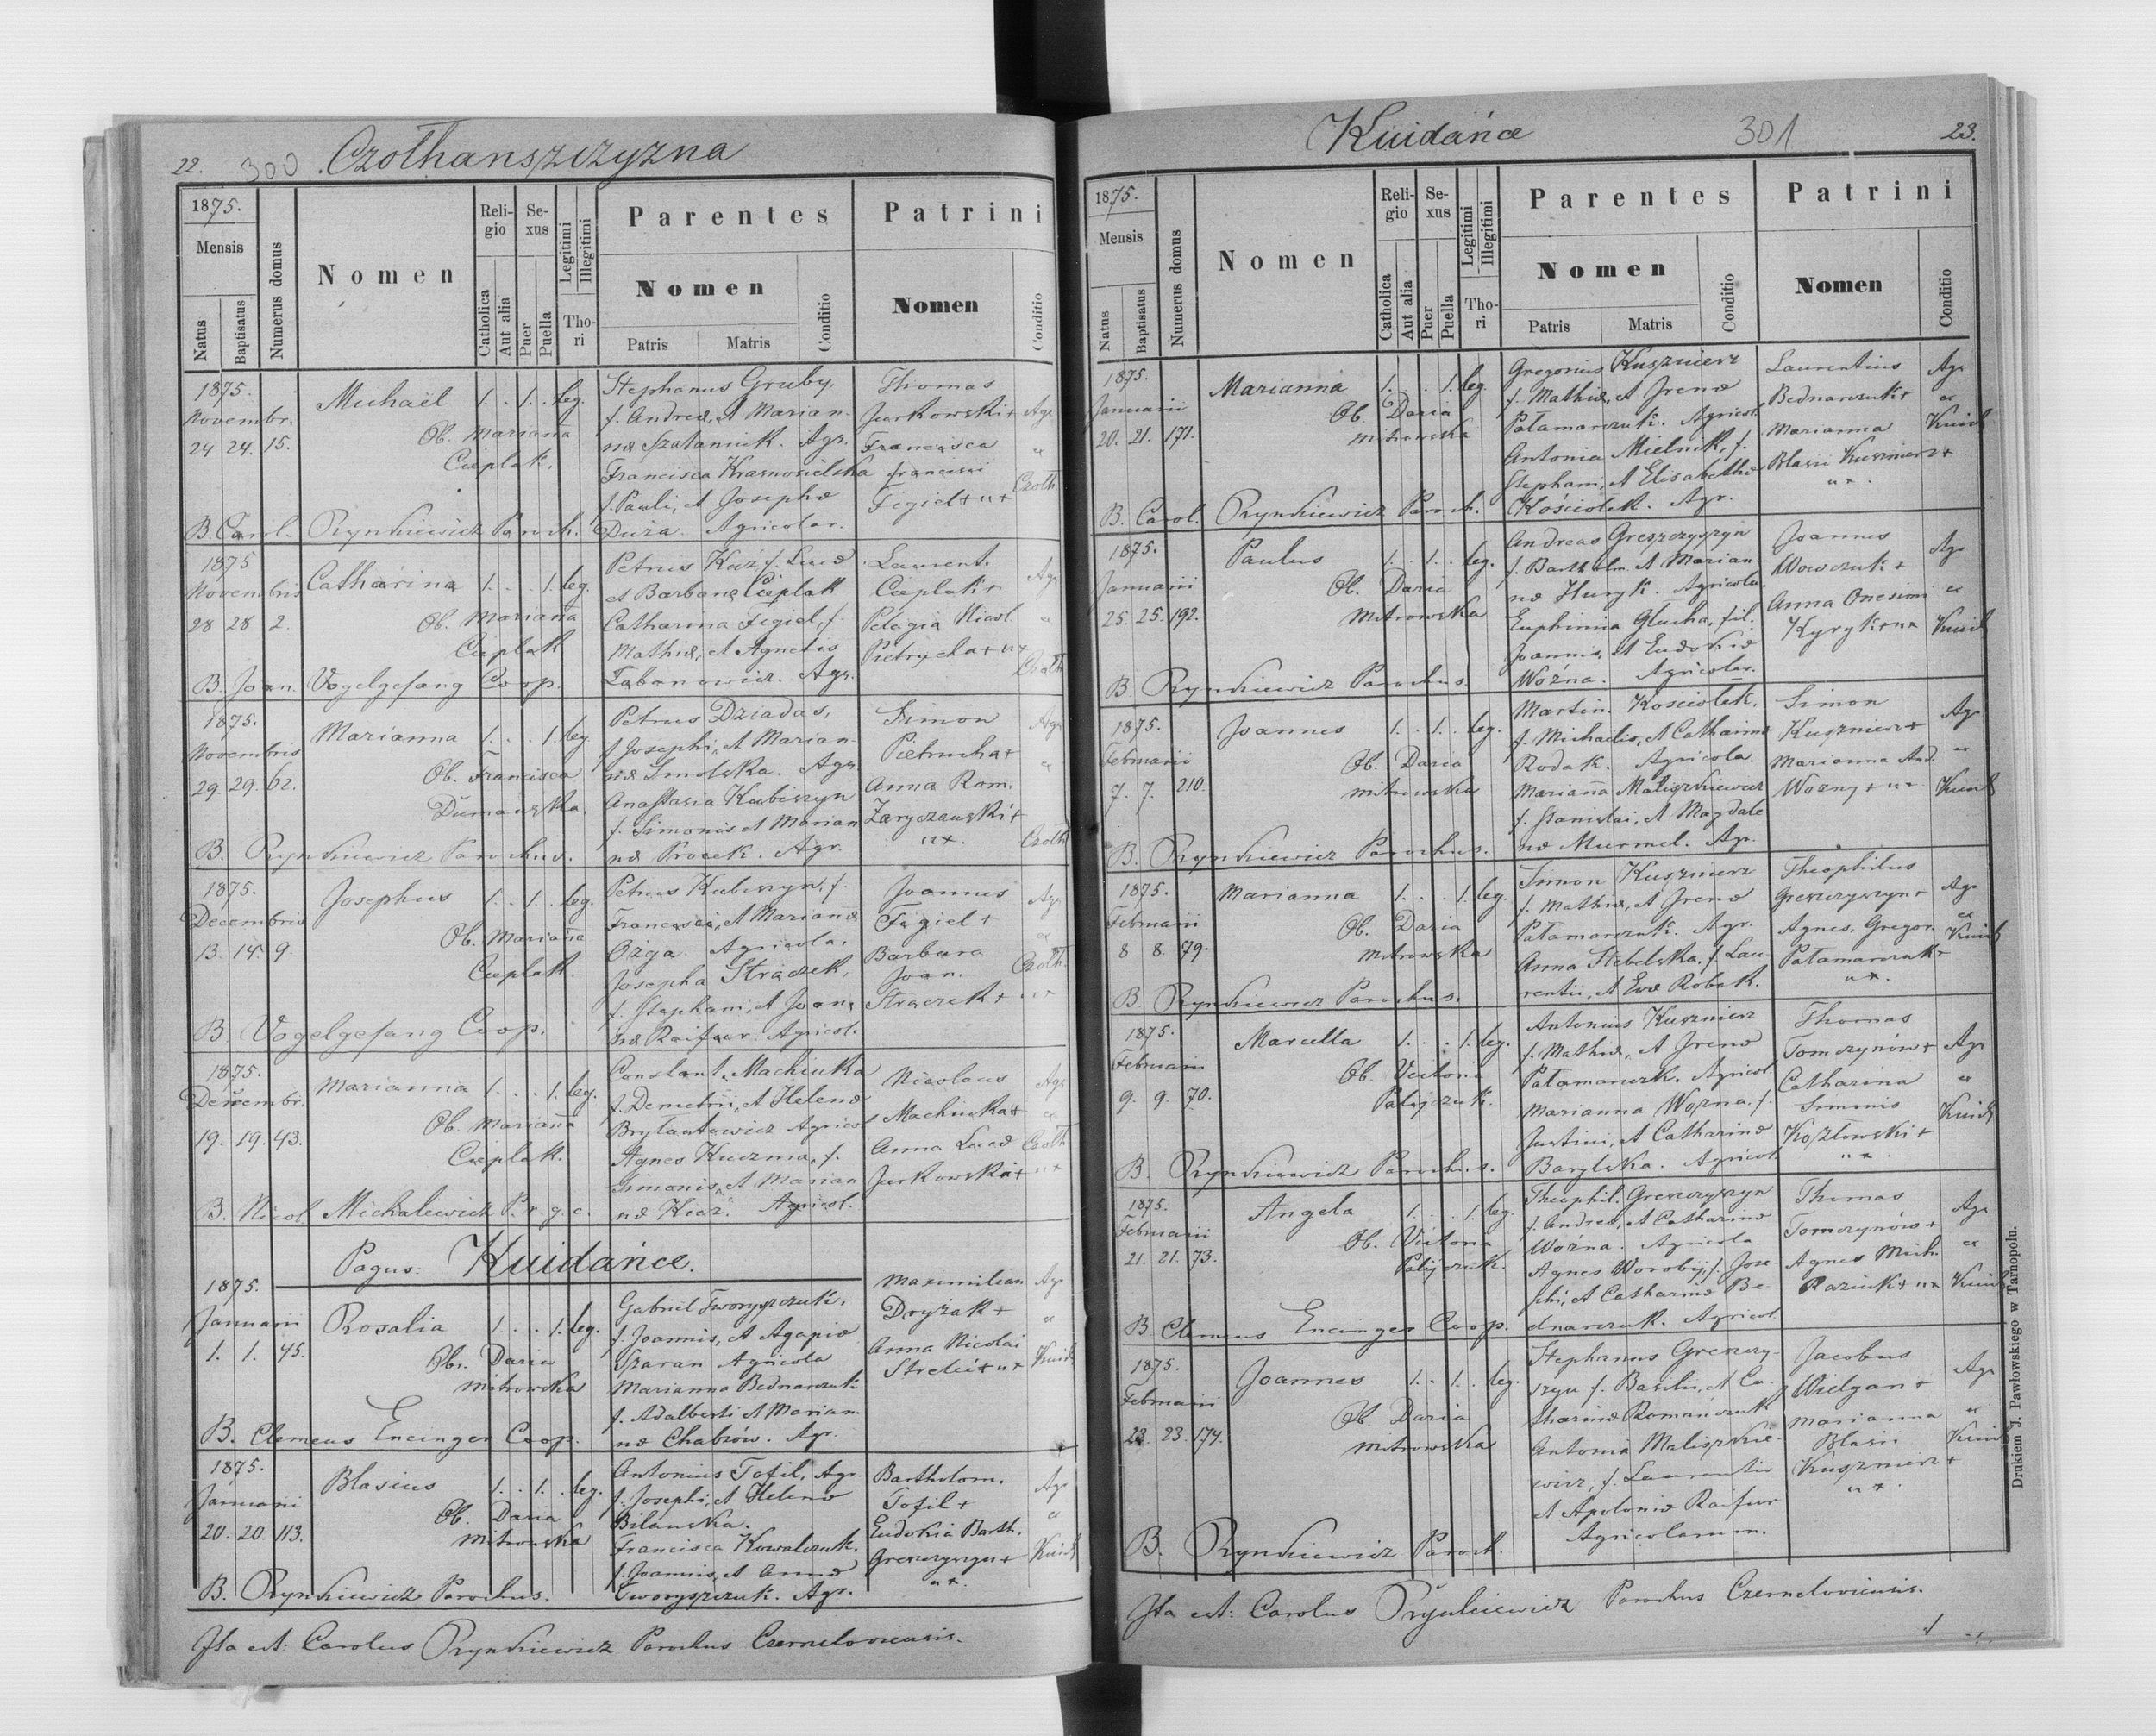 22. 300 Czołhanszczyzna
1875.
Mensis
Natus
Baptisatus
Numerus domus
Nomen
Religio
Catholica
Aut alia
Sexus
Puer
Puella
Legitimi
Illegitimi
Thori
Parentes
Nomen
Patris
Matris
Conditio
Patrini
Nomen
Conditio
1875.
Novembr.
24 24. 15.
Michaël 1. . 1. . leg.
Ob. Mariana
Cieplak.
Stephanus Gruby,
f. Andreæ, et Marian-
næ Szataniuk. Agr.
Francisca Krasnosielska
f. Pauli, et Josephæ
Duża. Agricolar.
Thomas
Jurkowski +
Francisca
Francisci
Figiel + u +
Agr
"
Czołh
B. Carol. Prynkiewicz Paroch.
1875
Novembris
28 28 2.
Catharina 1. . . 1. leg.
Ob. Mariana
Cieplak
Petrus Kaź f. Lucæ
et Barbaræ Cieplak
Catharina Figiel, f.
Mathiæ, et Agnetis
Tabanowicz. Agr.
Laurent.
Cieplak +
Pelagia Nicol.
Pietrycha + u +
Agr
"
Czołh
B. Joan. Vogelgesang Coop.
1875.
Novembris
29. 29. 62.
Marianna 1. . . 1. leg
Ob. Francisca
Dumańska.
Petrus Dziadas,
f. Josephi, et Marian-
næ Smolska. Agr.
Anastasia Kubiszyn
f. Simonis et Marian
næ Procek. Agr.
Simon
Pietrucha +
Anna Rom.
Zaryczański +
u +.
Agr
"
Czołh
B. Prynkiewicz Parochus.
1875.
Decembris
13. 14. 9.
Josephus 1. . 1. . leg.
Ob. Mariana
Cieplak.
Petrus Kubiszyn, f.
Francisci, et Mariannæ
Ożga. Agricola.
Josepha Strączek,
f. Stephani, et Joan-
næ Raifur. Agricol.
Joannes
Figiel +
Barbara
Joan.
Strączek + u +
Agr
"
Czołh.
B. Vogelgesang Coop.
1875.
Decembr.
19. 19. 43.
Marianna 1. . . 1. leg.
Ob. Mariana
Cieplak.
Constant. Machiuka
f. Demetrii, et Helenæ
Brylantowicz Agricol
Agnes Kuzma, f.
Simonis, et Marian
næ Kiaź. Agricol.
Nicolaus
Machiuka +
Anna Lucæ
Jurkowski +
u +
Agr
"
Czołh
B. Nicol Michalewicz P. r. g. c.
Pagus: Kuidańce.
1875.
Januarii
1. 1. 45.
Rosalia 1. . . 1. leg.
Obs. Daria
Mitrowska
Gabriel Tworyszczuk,
f. Joannis, et Agapiæ
Szaran Agricola
Marianna Bednarczuk
f. Adalberti et Marian
næ Chabrów. Agr.
Maximilian
Dryżak +
Anna Nicolai
Strelei + u +
Agr
"
Kuid
B. Clemens Encinger Coop.
1875.
Januarii
20. 20. 113.
Blasius 1. . 1. . leg.
Ob. Daria
Mitrowska
Antonius Tofil, Agr.
f. Josephi, et Helenæ
Bilańska.
Francisca Kowalczuk.
f. Joannis, et Annæ
Tworyszczuk. Agr.
Bartholom.
Tofil +
Eudokia Barth.
Greszczyszyn +
u +.
Agr
"
Kuid
B. Prynkiewicz Parochus.
Ita est: Carolus Prynkiewicz Parochus Czerneloviensis.
Kuidańce 301 23.
1875.
Mensis
Natus
Baptisatus
Numerus domus
Nomen
Religio
Catholica
Aut alia
Sexus
Puer
Puella
Legitimi
Illegitimi
Thori
Parentes
Nomen
Patris
Matris
Conditio
Patrini
Nomen
Conditio
1875.
Januarii
20. 21. 171.
Marianna 1. . . 1. leg.
Ob. Daria
Mitrowska
Gregorius Kusznierz
f. Mathiæ, et Irenæ
Pałamarczuk. Agricol.
Antonia Mielnik, f.
Stephani, et Elisabethæ
Kościolek. Agr.
Laurentius
Bednarczuk +
Marianna
Blasii Kuszmierz +
u +.
Agr
"
Kuid
B. Carol. Prynkiewicz Paroch.
1875.
Januarii
25. 25. 192.
Paulus 1. . 1. . leg.
Ob. Daria
Mitrowska
Andreas Greszczyszyn
f. Barthelm. et Marian
næ Huryk. Agricola.
Euphimia Glucha, fil.
Joannis, et Eudokiæ
Woźna. Agricolar.
Joannes
Wowczuk +
Anna Onesimi
Kyryk + u +
Agr
"
Kuid
B. Prynkiewicz Parochus.
1875.
Februarii
7. 7. 210.
Joannes 1. . 1. . leg.
Ob. Daria
Mitrowska
Martin. Kosciołek,
f. Michaelis, et Catharinæ
Rodak. Agricola.
Mariana Maliszkiewicz
f. Stanislai, et Magdale
næ Murmel. Agr.
Simon
Kuszmierz +
Marianna And.
Wozny + u +
Agr
"
Kuid
B. Prynkiewicz Parochus.
1875.
Februarii
8 8. 79.
Marianna 1. . . 1. leg.
Ob. Daria
Mitrowska
Simon Kuszmierz
f. Mathiæ, et Irenæ
Pałamarczuk. Agr.
Anna Stebelska, f. Lau-
rentii, et Evæ Robak.
Theophilus
Greszczyszyn +
Agnes, Gregor.
Pałamarczuk +
u +.
Agr
"
Kuid
B. Prynkiewicz Parochus.
1875.
Februarii
9. 9. 70.
Marcella 1. . . 1. leg.
Ob. Victoria
Palijczuk.
Antonius Kuszmierz
f. Mathiæ, et Irenæ
Pałamarczk. Agricol
Marianna Wozna, f.
Justini, et Catharinæ
Barylska. Agricol
Thomas
Tomczynów +
Catharina
Simonis
Kozłowski +
u +.
Agr
"
Kuid
B. Prynkiewicz Parochus.
1875.
Februarii
21. 21. 73.
Angela 1. . . 1. leg.
Ob. Victoria
Palijczuk.
Theophil. Greszczyszyn
f. Andreæ, et Catharinæ
Woźna. Agricola.
Agnes Worobij, f. Jose-
phi, et Catharinæ Be-
dnarczuk. Agricol.
Thomas
Tomczynów +
Agnes Mich.
Raziuk + u +
Agr
"
Kuid
B. Clemens Encinger Coop.
1875.
Februarii
23. 23. 174.
Joannes 1. . 1. . leg.
Ob. Daria
Mitrowska
Stephanus Greszczy-
szyn f. Basilii, et Ca-
tharinæ Romanczuk
Antonia Maliszkie-
wicz, f. Laurentii
et Apoloniæ Raifur
Agricolarum.
Jacobus
Wielgan +
Marianna
Blasii
Kuszmierz +
u +.
Agr
"
Kuid
B. Prynkiewicz Paroch.
Ita est: Carolus Prynkiewicz Parochus Czerneloviensis.
Drukiem J. Pawłowskiego w Tarnopolu.